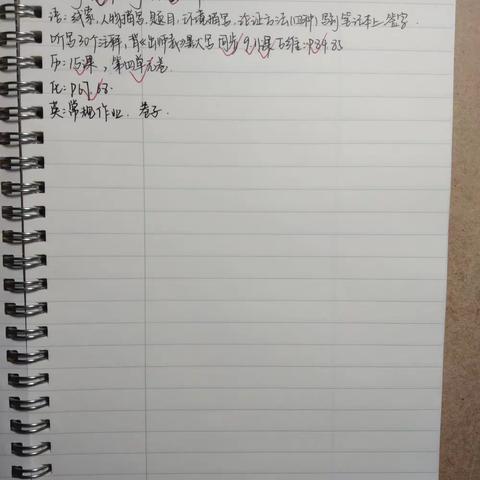 语:线索,人物描写,题目,环境描写,论证方法(四种)写到笔记本上.签字
听写30个注释,背《出师表》最大写 同步 9.11课 百维:P84.85
历:15课,第四单元卷.
化:P67.68.
英:常规作业. 卷子.